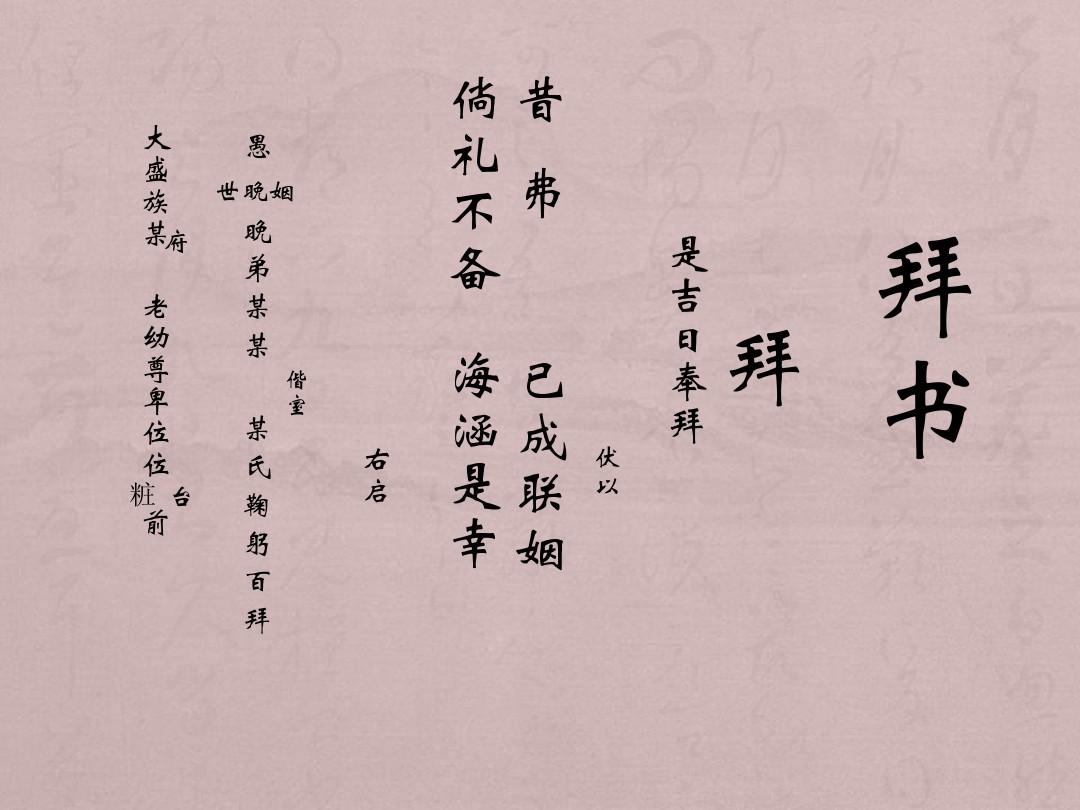 拜书
拜
是吉日奉拜
伏以
昔 弗 已成联姻
倘礼不备 海涵是幸
右启
偕室
愚
世晚姻
晚弟某某 某氏鞠躬百拜
大盛族某府 老幼尊卑位位
粧台
前